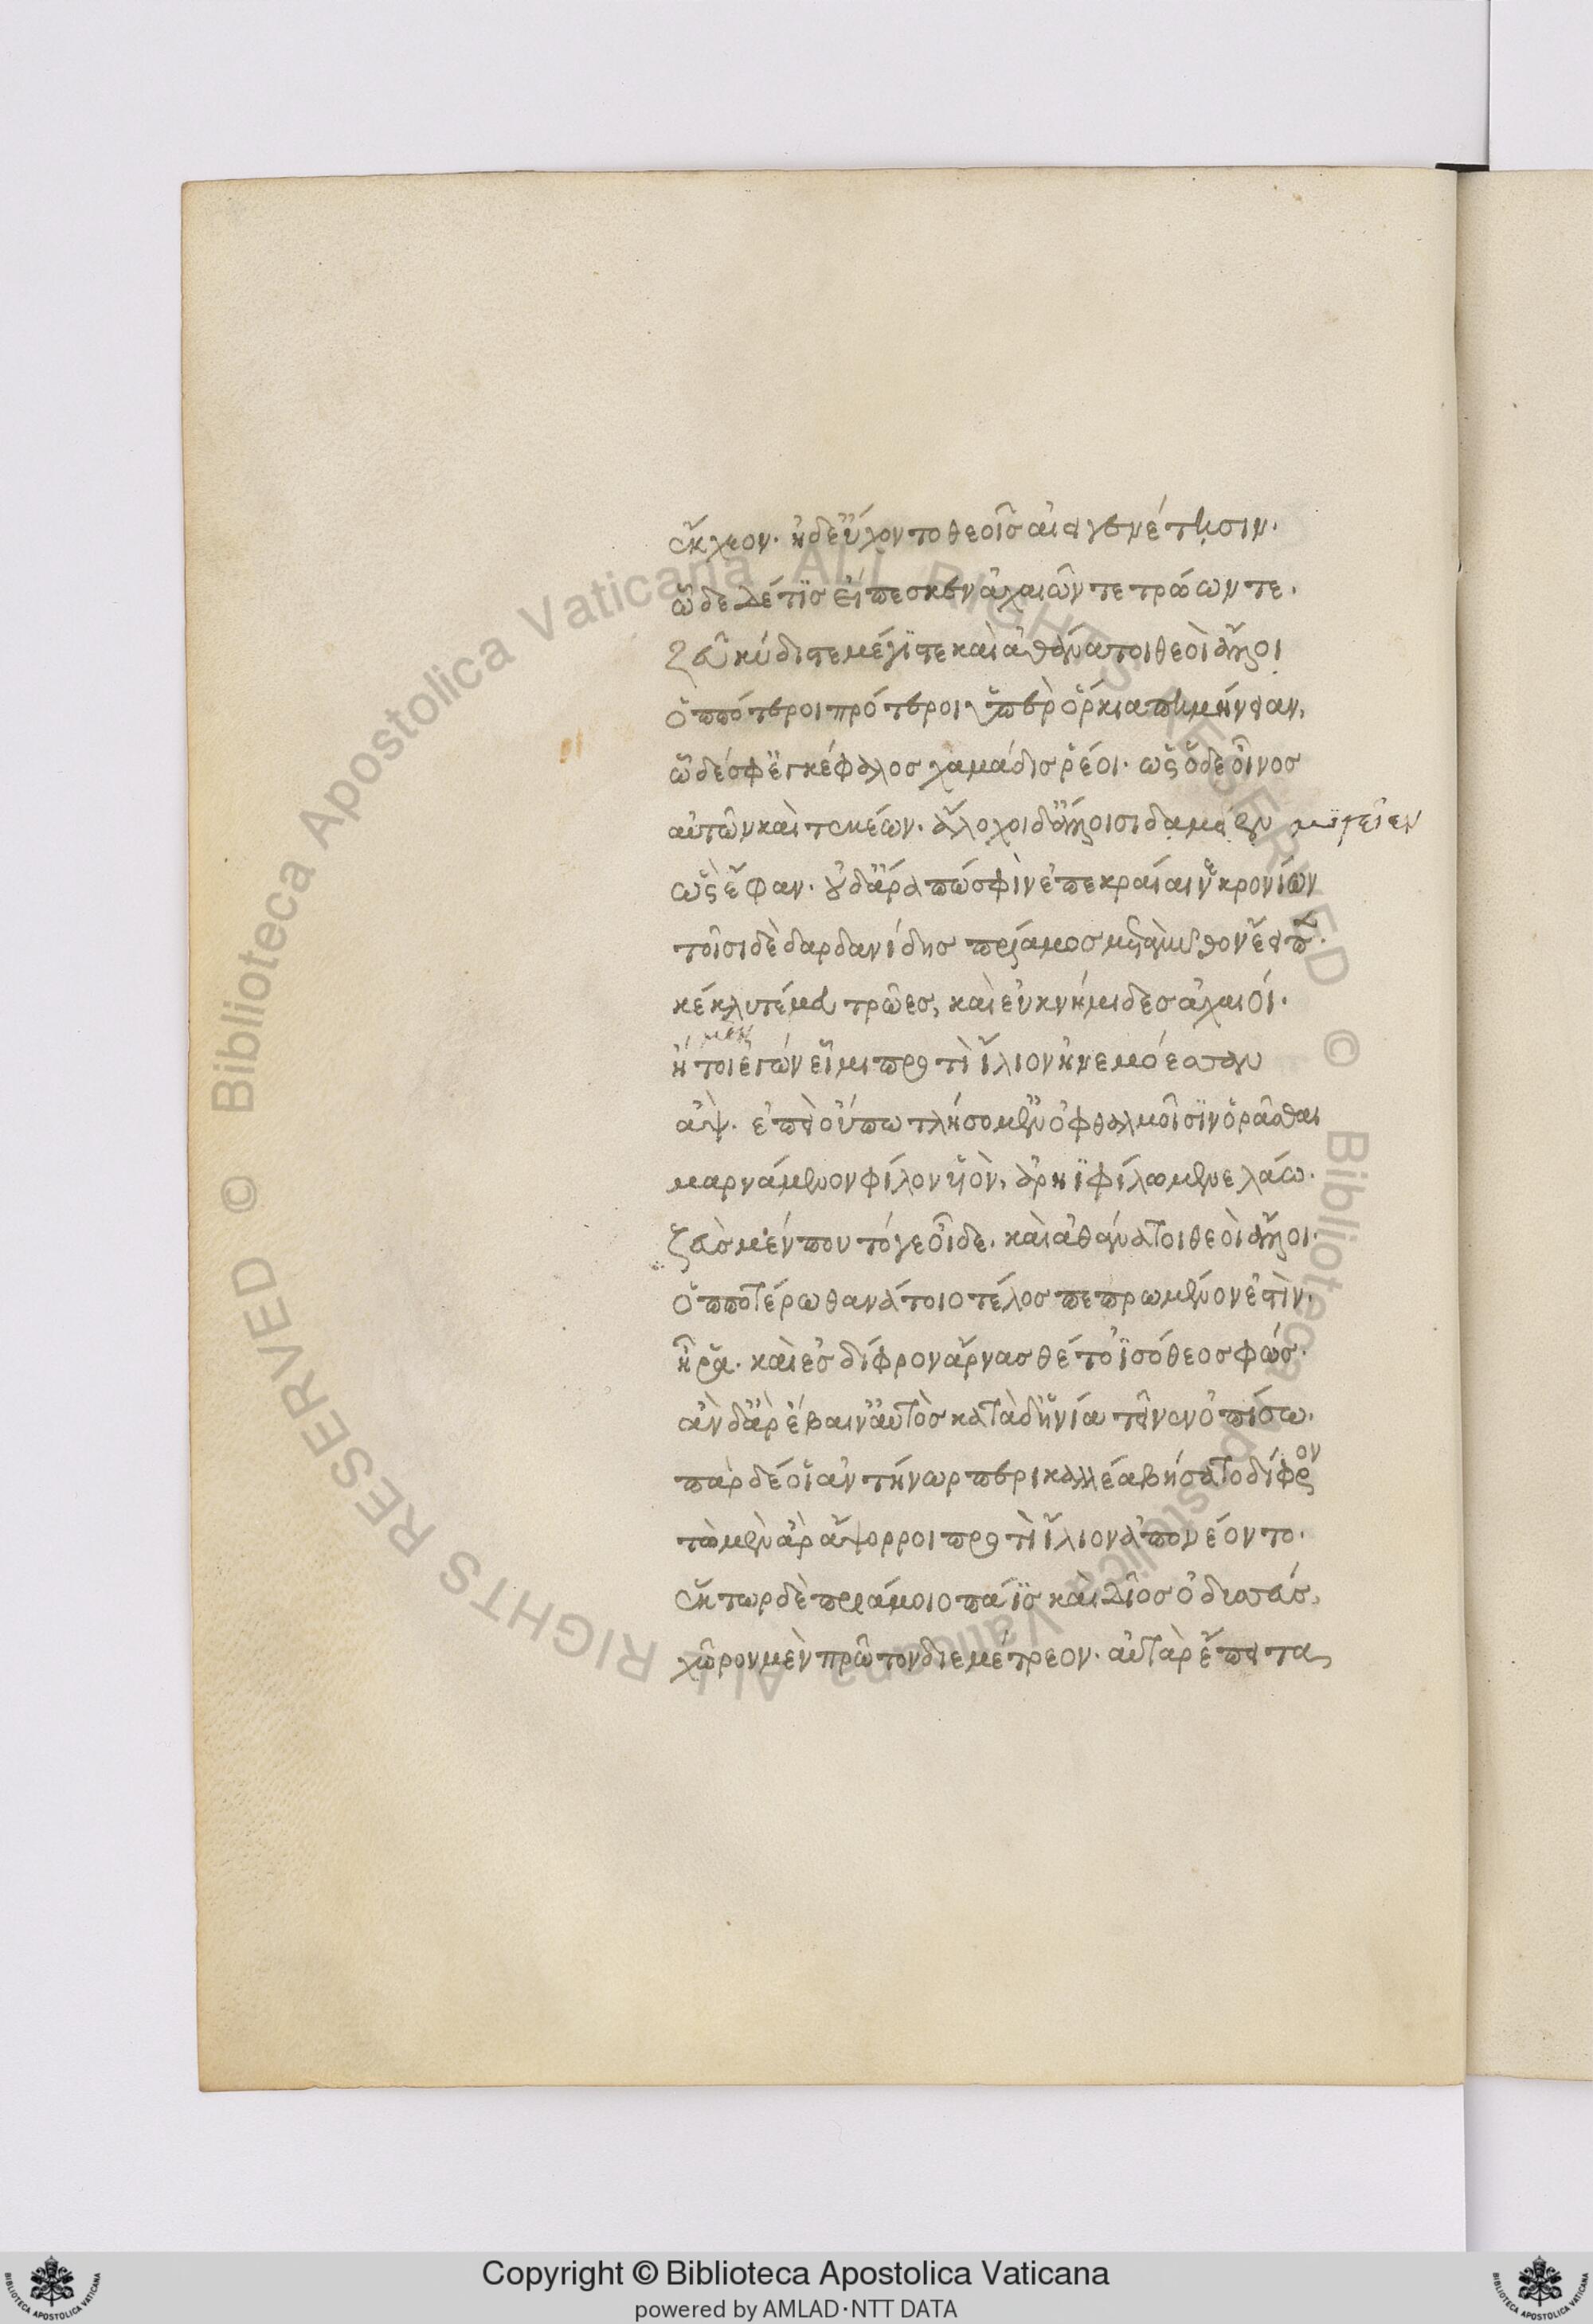 ἔκχεον. ἠδ' εὔχοντο θεοῖς αἰειγενέτησιν.
ὧδε δέ τις εἴπεσκεν ἀχαιῶν τε τρώων τε.
ζεῦ κύδιστε μέγιστε καὶ ἀθάνατοι θεοὶ ἄλλοι
ὁππότεροι πρότεροι ὑπὲρ ὅρκια πημήνειαν,
ὧδέ σφ' ἐγκέφαλος χαμάδις ῥέοι. ὡς ὅδε οἶνος
αὐτῶν καὶ τεκέων. ἄλοχοι δ' ἄλλοισι δαμεῖεν μιγεῖεν
ὣς ἔφαν. οὐδ' ἄρα πώ σφιν ἐπεκραίαινε κρονίων
τοῖσι δὲ δαρδανίδης πρίαμος μετὰ μῦθον ἔειπε.
κέκλυτέ μευ τρῶες, καὶ ευκνήμιδες ἀχαιοί.
μὲν
ἤτοι ἐγὼν εἶμι προτὶ ἴλιον ἠνεμόεσσαν
ἄψ. ἐπεὶ οὔπω τλήσομ' ἐν ὀφθαλμοῖσιν ὁρᾶσθαι
μαρνάμενον φίλον υἱὸν, ἀρηϊφίλω μενελάω.
ζεὺς μέν που τόγε οἶδε. καὶ ἀθάνατοι θεοὶ ἄλλοι.
ὁπποτέρω θανάτοιο τέλος πεπρωμένον ἐστίν.
ἦ ῥα. καὶ ἐς δίφρον ἄρνας θέτο ἰσόθεος φώς.
ἂν δ' ἄρ' ἔβαιν' αὐτὸς κατὰ δ' ἡνία τεῖνεν ὀπίσω.
πὰρ δέ οἱ ἀντήνωρ περικαλλέα βήσατο δίφρον
τὼ μὲν ἄρ' ἄψορροι προτὶ ἴλιον ἀπονέοντο.
ἕκτωρ δὲ πριάμοιο πάϊς καὶ δῖος ὀδυσσεύς,
χῶρον μὲν πρῶτον διεμέτρεον. αὐτὰρ ἔπειτα
Copyright © Biblioteca Apostolica Vaticana
powered by AMLAD·NTT DATA